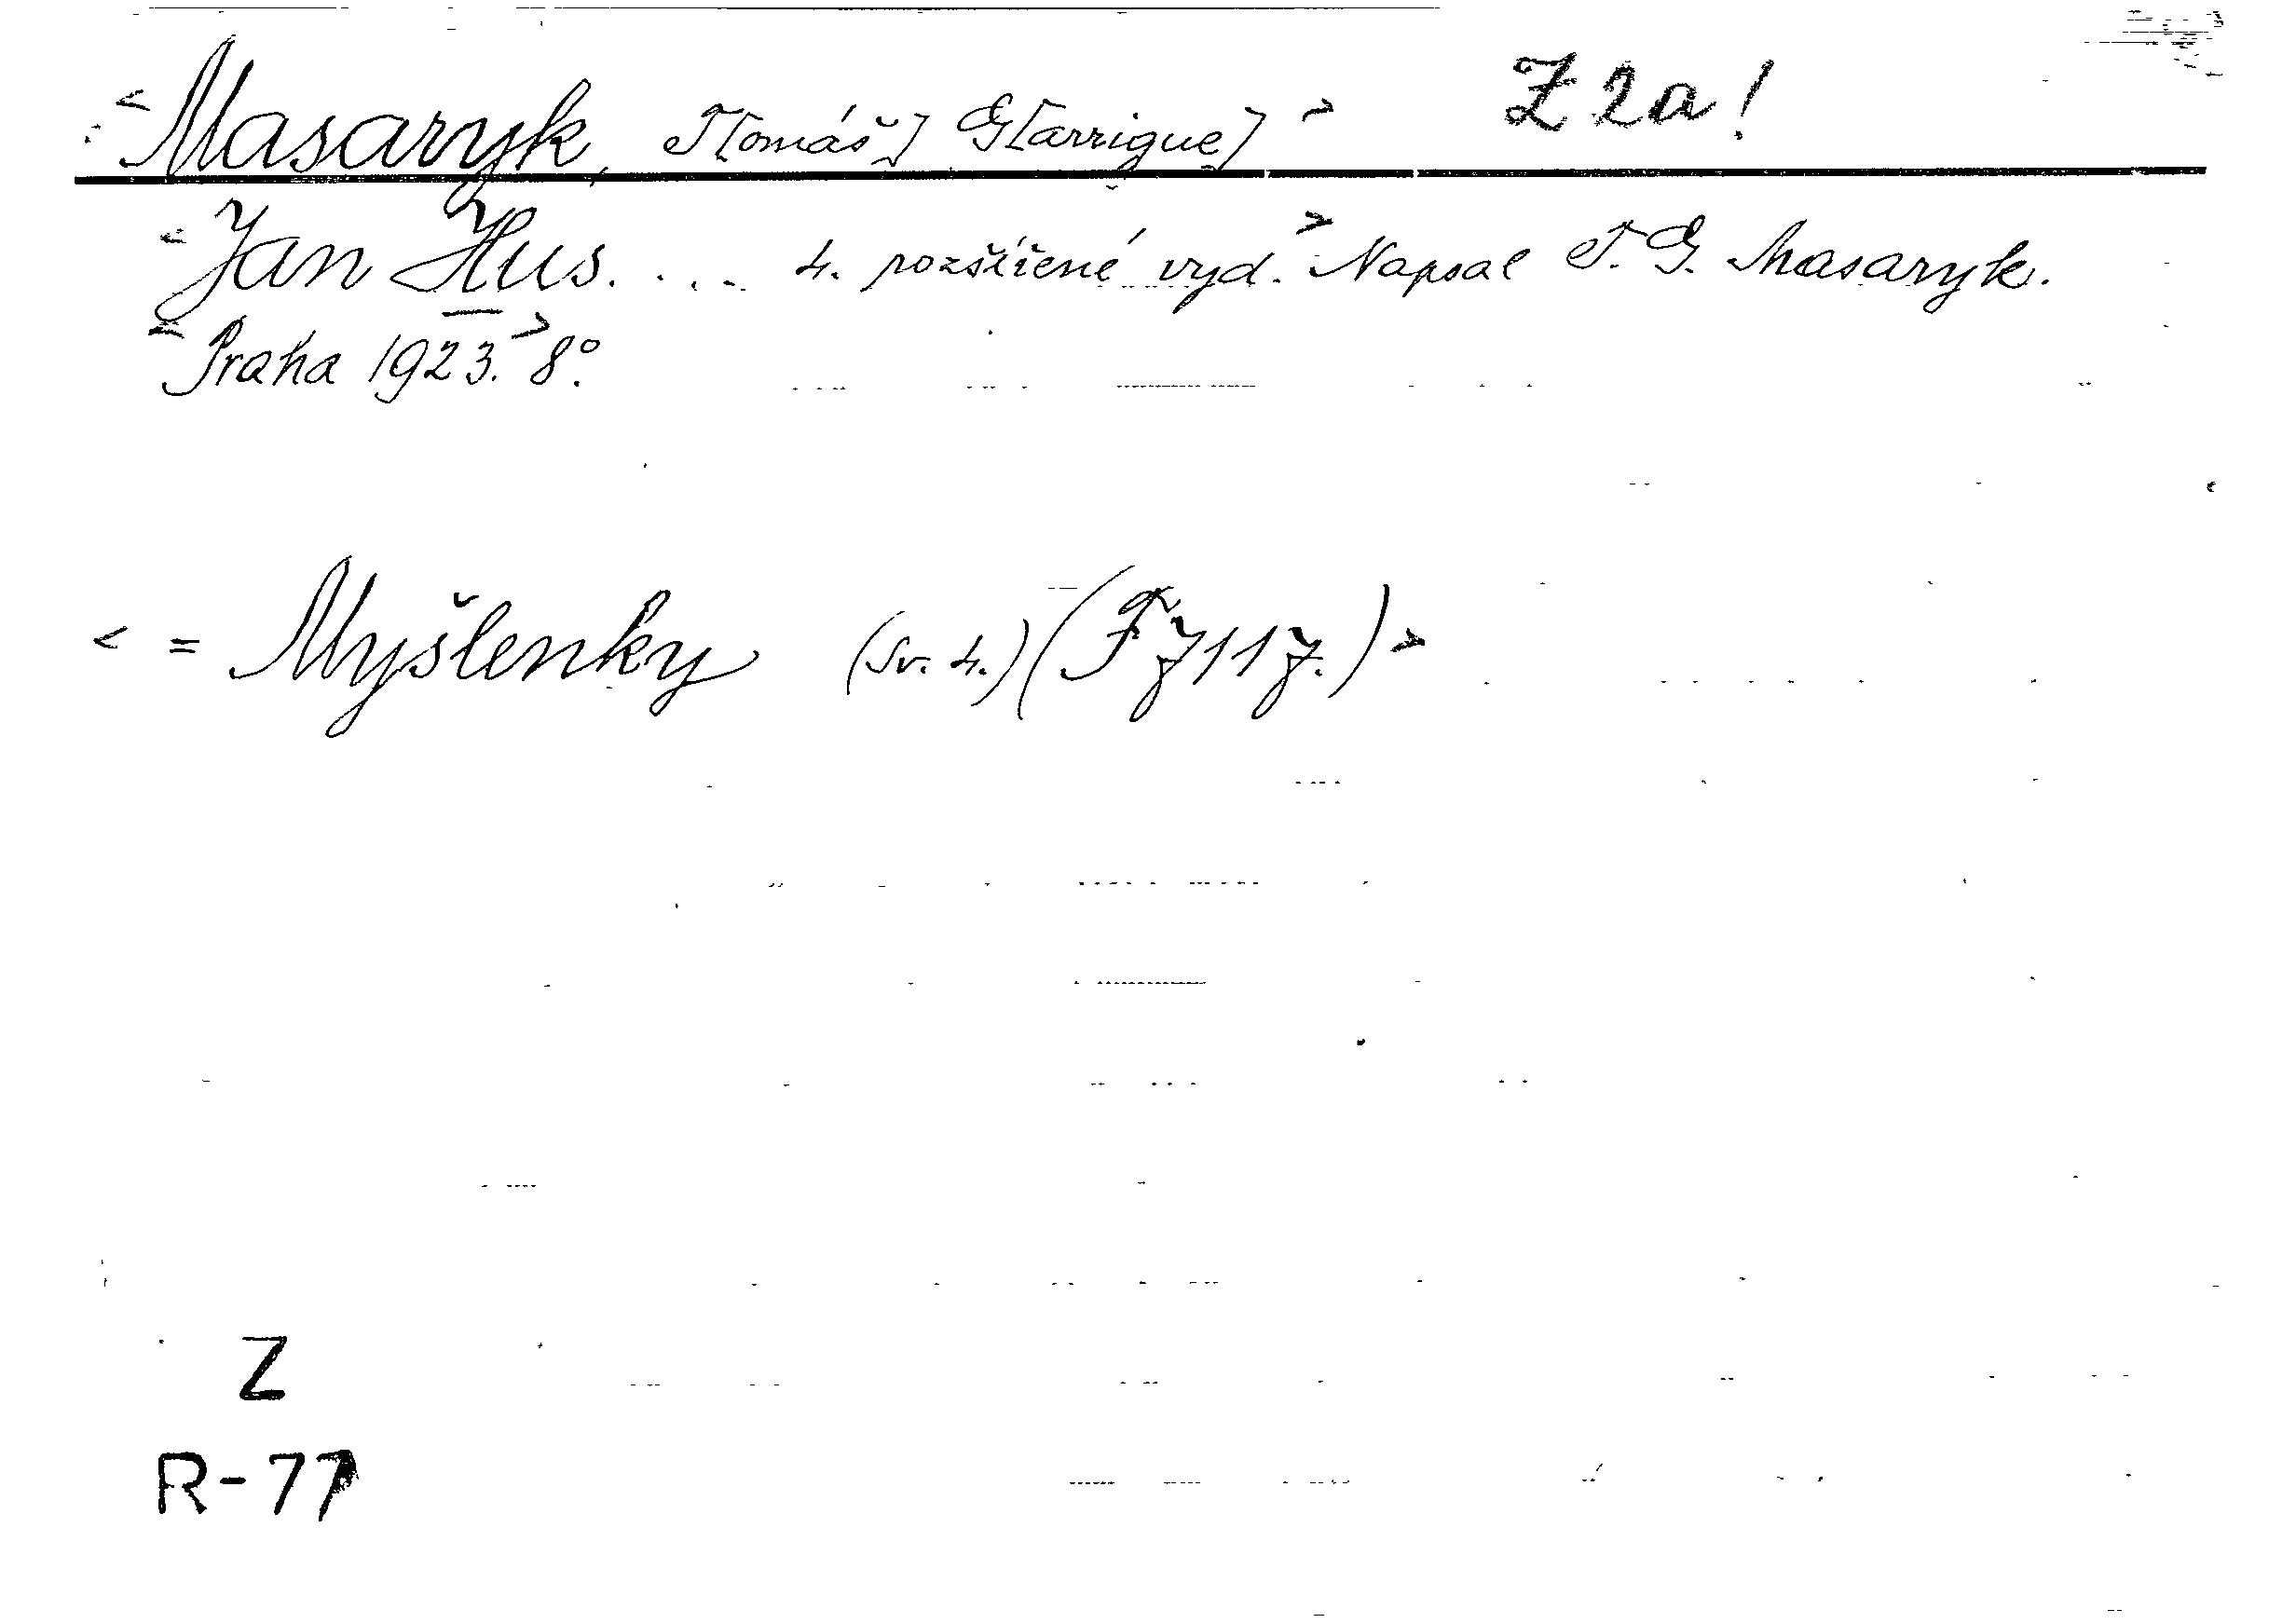 <Masaryk, T[omáš] G[arrigue]> Z 2a!
<Jan Hus. ... 4. rozšířené vyd.> Napsal T. G. Masaryk.
<Praha 1923.> 8°.
< = Myšlenky (sv. 4.) (F 7117.)>
Z
R-77